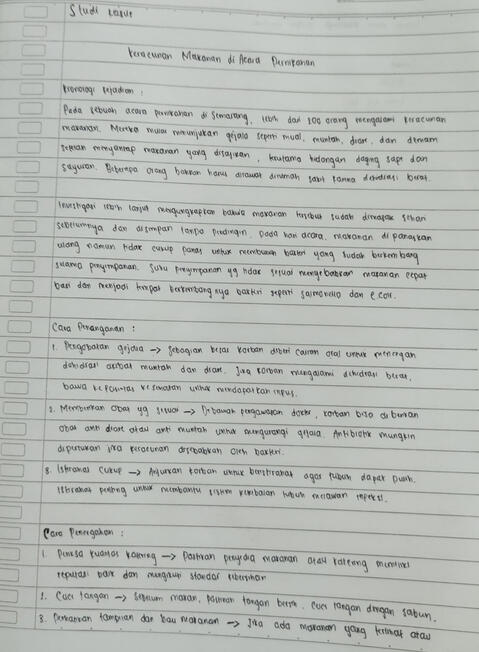 Studi kasus
Keracunan Makanan di Acara Pernikahan
Kronologi kejadian :
Pada sebuah acara pernikahan di Semarang, lebih dari 100 orang mengalami keracunan
makanan. Mereka mulai menunjukan gejala seperti mual, muntah, diare, dan demam
setelah menyantap makanan yang disajikan, terutama hidangan daging sapi dan
sayuran. Beberapa orang bahkan harus dirawat dirumah sakit karena dehidrasi berat.
Investigasi lebih lanjut mengungkapkan bahwa makanan tersebut sudah dimasak sehari
sebelumnya dan disimpan tanpa pendingin. Pada hari acara, makanan di panaskan
ulang namun tidak cukup panas untuk membunuh bakteri yang sudah berkembang
selama penyimpanan. Suhu penyimpanan yg tidak sesuai menyebabkan makanan cepat
basi dan menjadi tempat berkembang nya bakteri seperti salmonella dan e coli.
Cara Penanganan :
1. Pengobatan gejala → sebagian besar korban diberi cairan oral untuk mencegah
dehidrasi akibat muntah dan diare. Jika korban mengalami dehidrasi berat,
bawa ke fasilitas kesehatan untuk mendapatkan infus.
2. Memberikan obat yg sesuai → Dibawah pengawasan dokter, korban bisa di berikan
obat anti diare atau anti muntah untuk mengurangi gejala. Antibiotik mungkin
diperlukan jika keracunan disebabkan oleh bakteri.
3. Istirahat cukup → Anjurkan korban untuk beristirahat agar tubuh dapat pulih.
Istirahat penting untuk membantu sistem kekebalan tubuh melawan infeksi.
Cara Pencegahan :
1. Periksa kualitas katering → Pastikan penyedia makanan atau katering memiliki
reputasi baik dan mengikuti standar kebersihan
2. Cuci tangan → Sebelum makan, pastikan tangan bersih. Cuci tangan dengan sabun.
3. Perhatikan tampilan dan bau makanan → Jika ada makanan yang terlihat atau